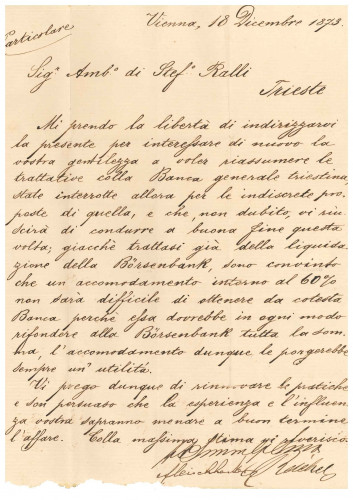 Particolare
Vienna, 18 Dicembre 1873.
Sigr Ambo di Stefo Ralli
Trieste
Mi prendo la libertà di indirizzarvi
la presente per interessare di nuovo la
vostra gentilezza a voler riassumere le
trattative colla Banca generale triestina,
state interrotte allora per le indiscrete pro-
poste di quella, e che, non dubito, vi riu-
scirà di condurre a buona fine questa
volta; giacchè trattasi già della liquida-
zione della Börsenbank, sono convinto
che un accomodamento intorno al 60%
non sarà difficile di ottenere da cotesta
Banca perchè essa dovrebbe in ogni modo
rifondere alla Börsenbank tutta la som-
ma, l'accomodamento dunque le porgerebbe
sempre un' utilità.
Vi prego dunque di rinnovare le pratiche
e son persuaso che la esperienza e l'influen-
za vostra sapranno menare a buon termine
l'affare. Colla massima stima vi riverisco